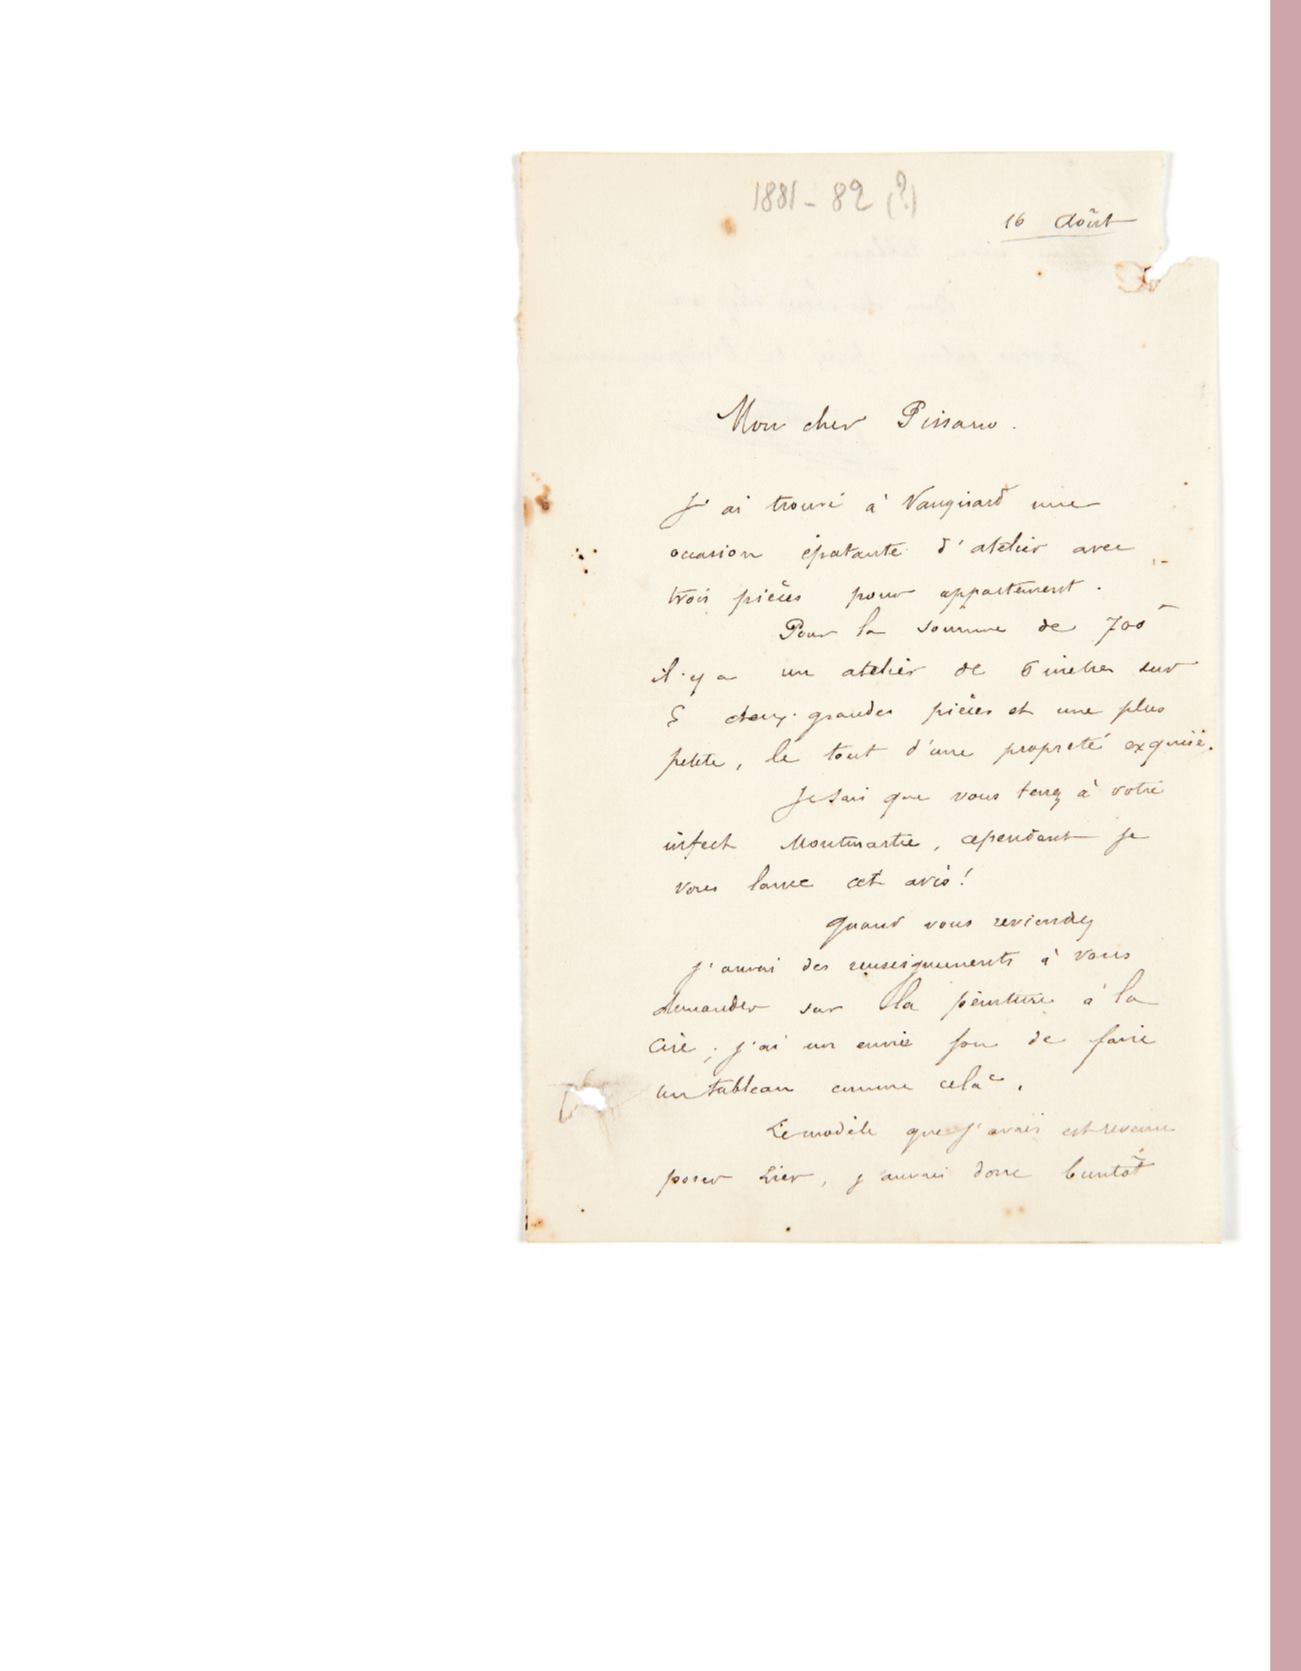 1881-82 (?)
16 Août
Mon cher Pissarro.
J'ai trouvé à Vaugirard une
occasion épatante d'atelier avec
trois pièces pour appartement.
Pour la somme de 700
il y a un atelier de 6 mètres sur
5 deux grandes pièces et une plus
petite, le tout d'une propreté exquise.
Je sais que vous tenez à votre
infect Montmartre, cependant je
vous lance cet avis!
Quand vous reviendrez
j'aurai des renseignements à vous
demander sur la peinture à la
cire; j'ai un envie fou de faire
un tableau comme cela.
Le modèle que j'avais est revenu
poser hier, j'aurai donc bientôt